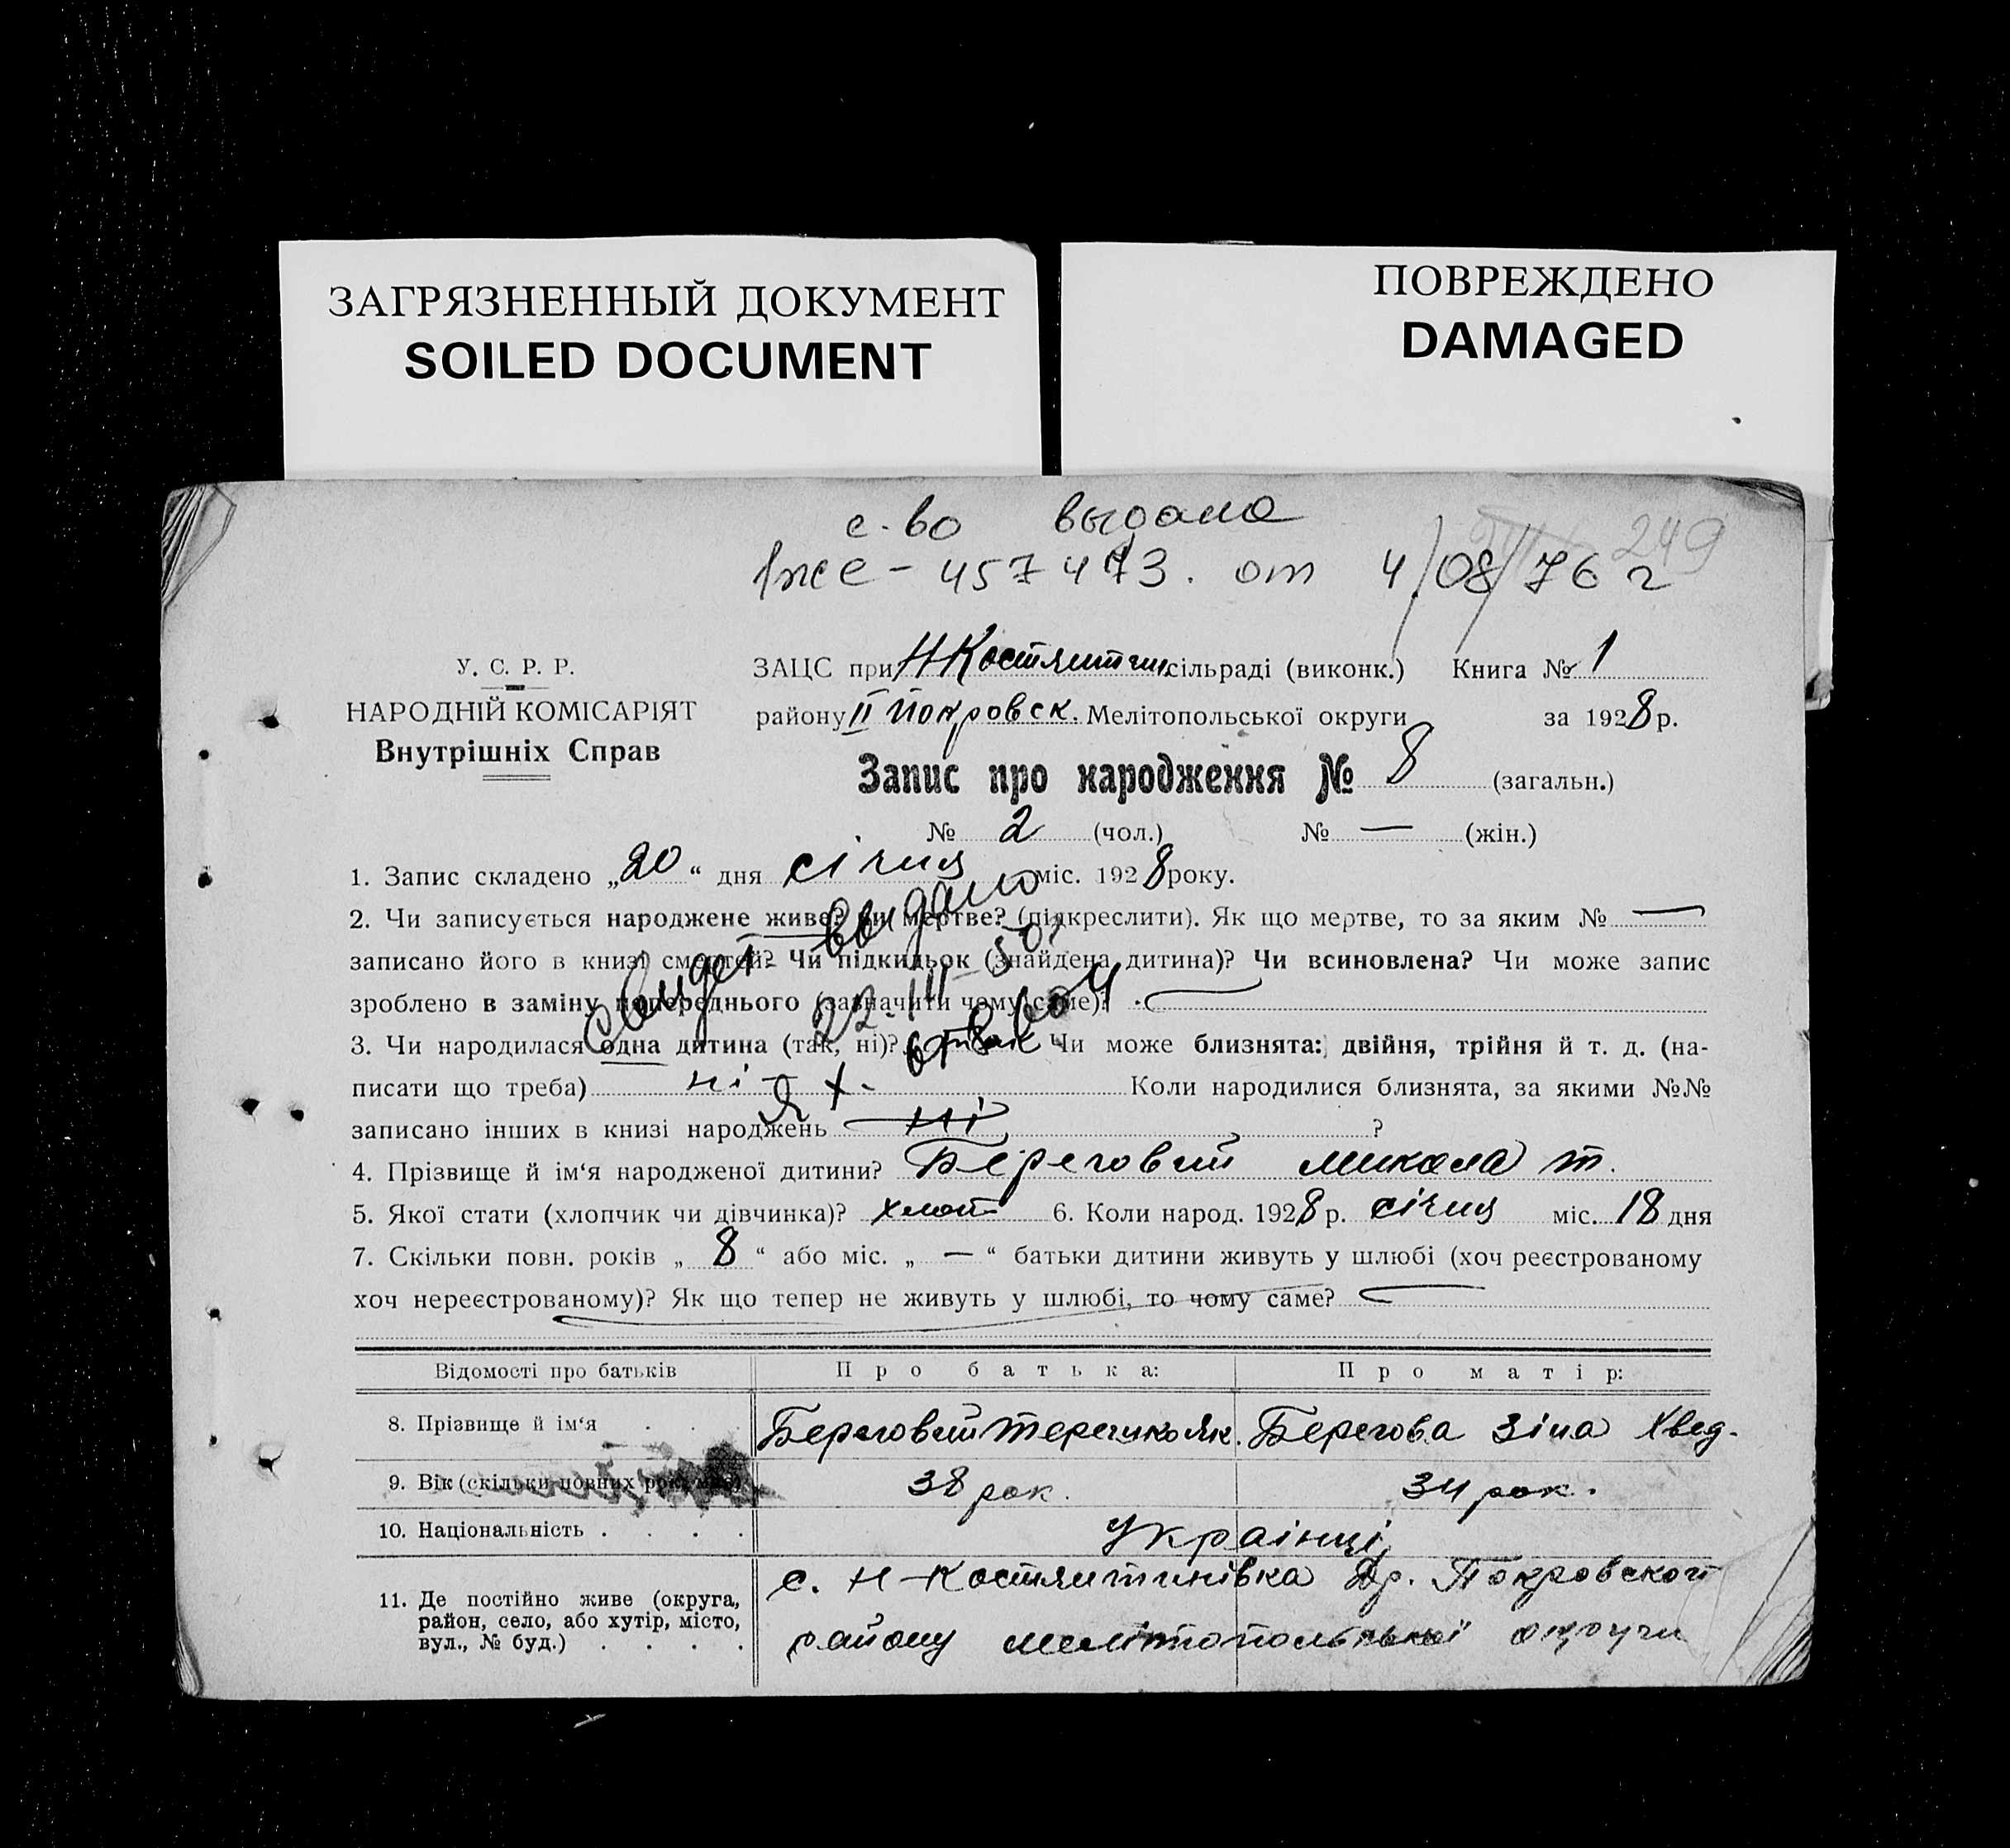 ЗАГРЯЗНЕННЫЙ ДОКУМЕНТ
SOILED DOCUMENT
ПОВРЕЖДЕНО
DAMAGED
с-во выдано
249
457473. от 4/08/76 г
У. С. Р. Р.
НАРОДНІЙ КОМІСАРІЯТ
Внутрішніх Справ
ЗАЦС при Н Костянтин. сільраді (виконк.) Книга № 1
району II Покровск. Мелітопольської округи за 1928 р.
Запис про народження № 8 (загальн.)
№ 2 (чол.) № — (жін.)
1. Запис складено „20“ дня січня міс. 1928 року.
2. Чи записується народжене живе? чи мертве? (підкреслити). Як що мертве, то за яким № —
записано його в книзі смертей? Чи підкидьок (знайдена дитина)? Чи всиновлена? Чи може запис
зроблено в заміну попереднього (зазначити чому саме)?
Свидет выдано
22-III-50
3. Чи народилася одна дитина (так, ні)? так Чи може близнята: двійня, трійня й т. д. (на-
писати що треба) ні Коли народилися близнята, за якими №№
записано інших в книзі народжень ні ?
4. Прізвище й ім‘я народженої дитини? Береговий Микола Т.
5. Якої стати (хлопчик чи дівчинка)? хлоп 6. Коли народ. 1928 р. січня міс. 18 дня
7. Скільки повн. років „ 8 “ або міс. „ — “ батьки дитини живуть у шлюбі (хоч реєстрованому
хоч нереєстрованому)? Як що тепер не живуть у шлюбі, то чому саме?
Відомості про батьків Про батька: Про матір:
8. Прізвище й ім‘я Береговий Терешко Як. Берегова Зіна Хвед.
9. Вік (скільки повних рок. має) 38 рок. 34 рок.
10. Національність Українці
11. Де постійно живе (округа,
район, село, або хутір, місто,
вул., № буд.)
с. Н-Костянтинівка Др. Покровского
району Мелітопольської округи